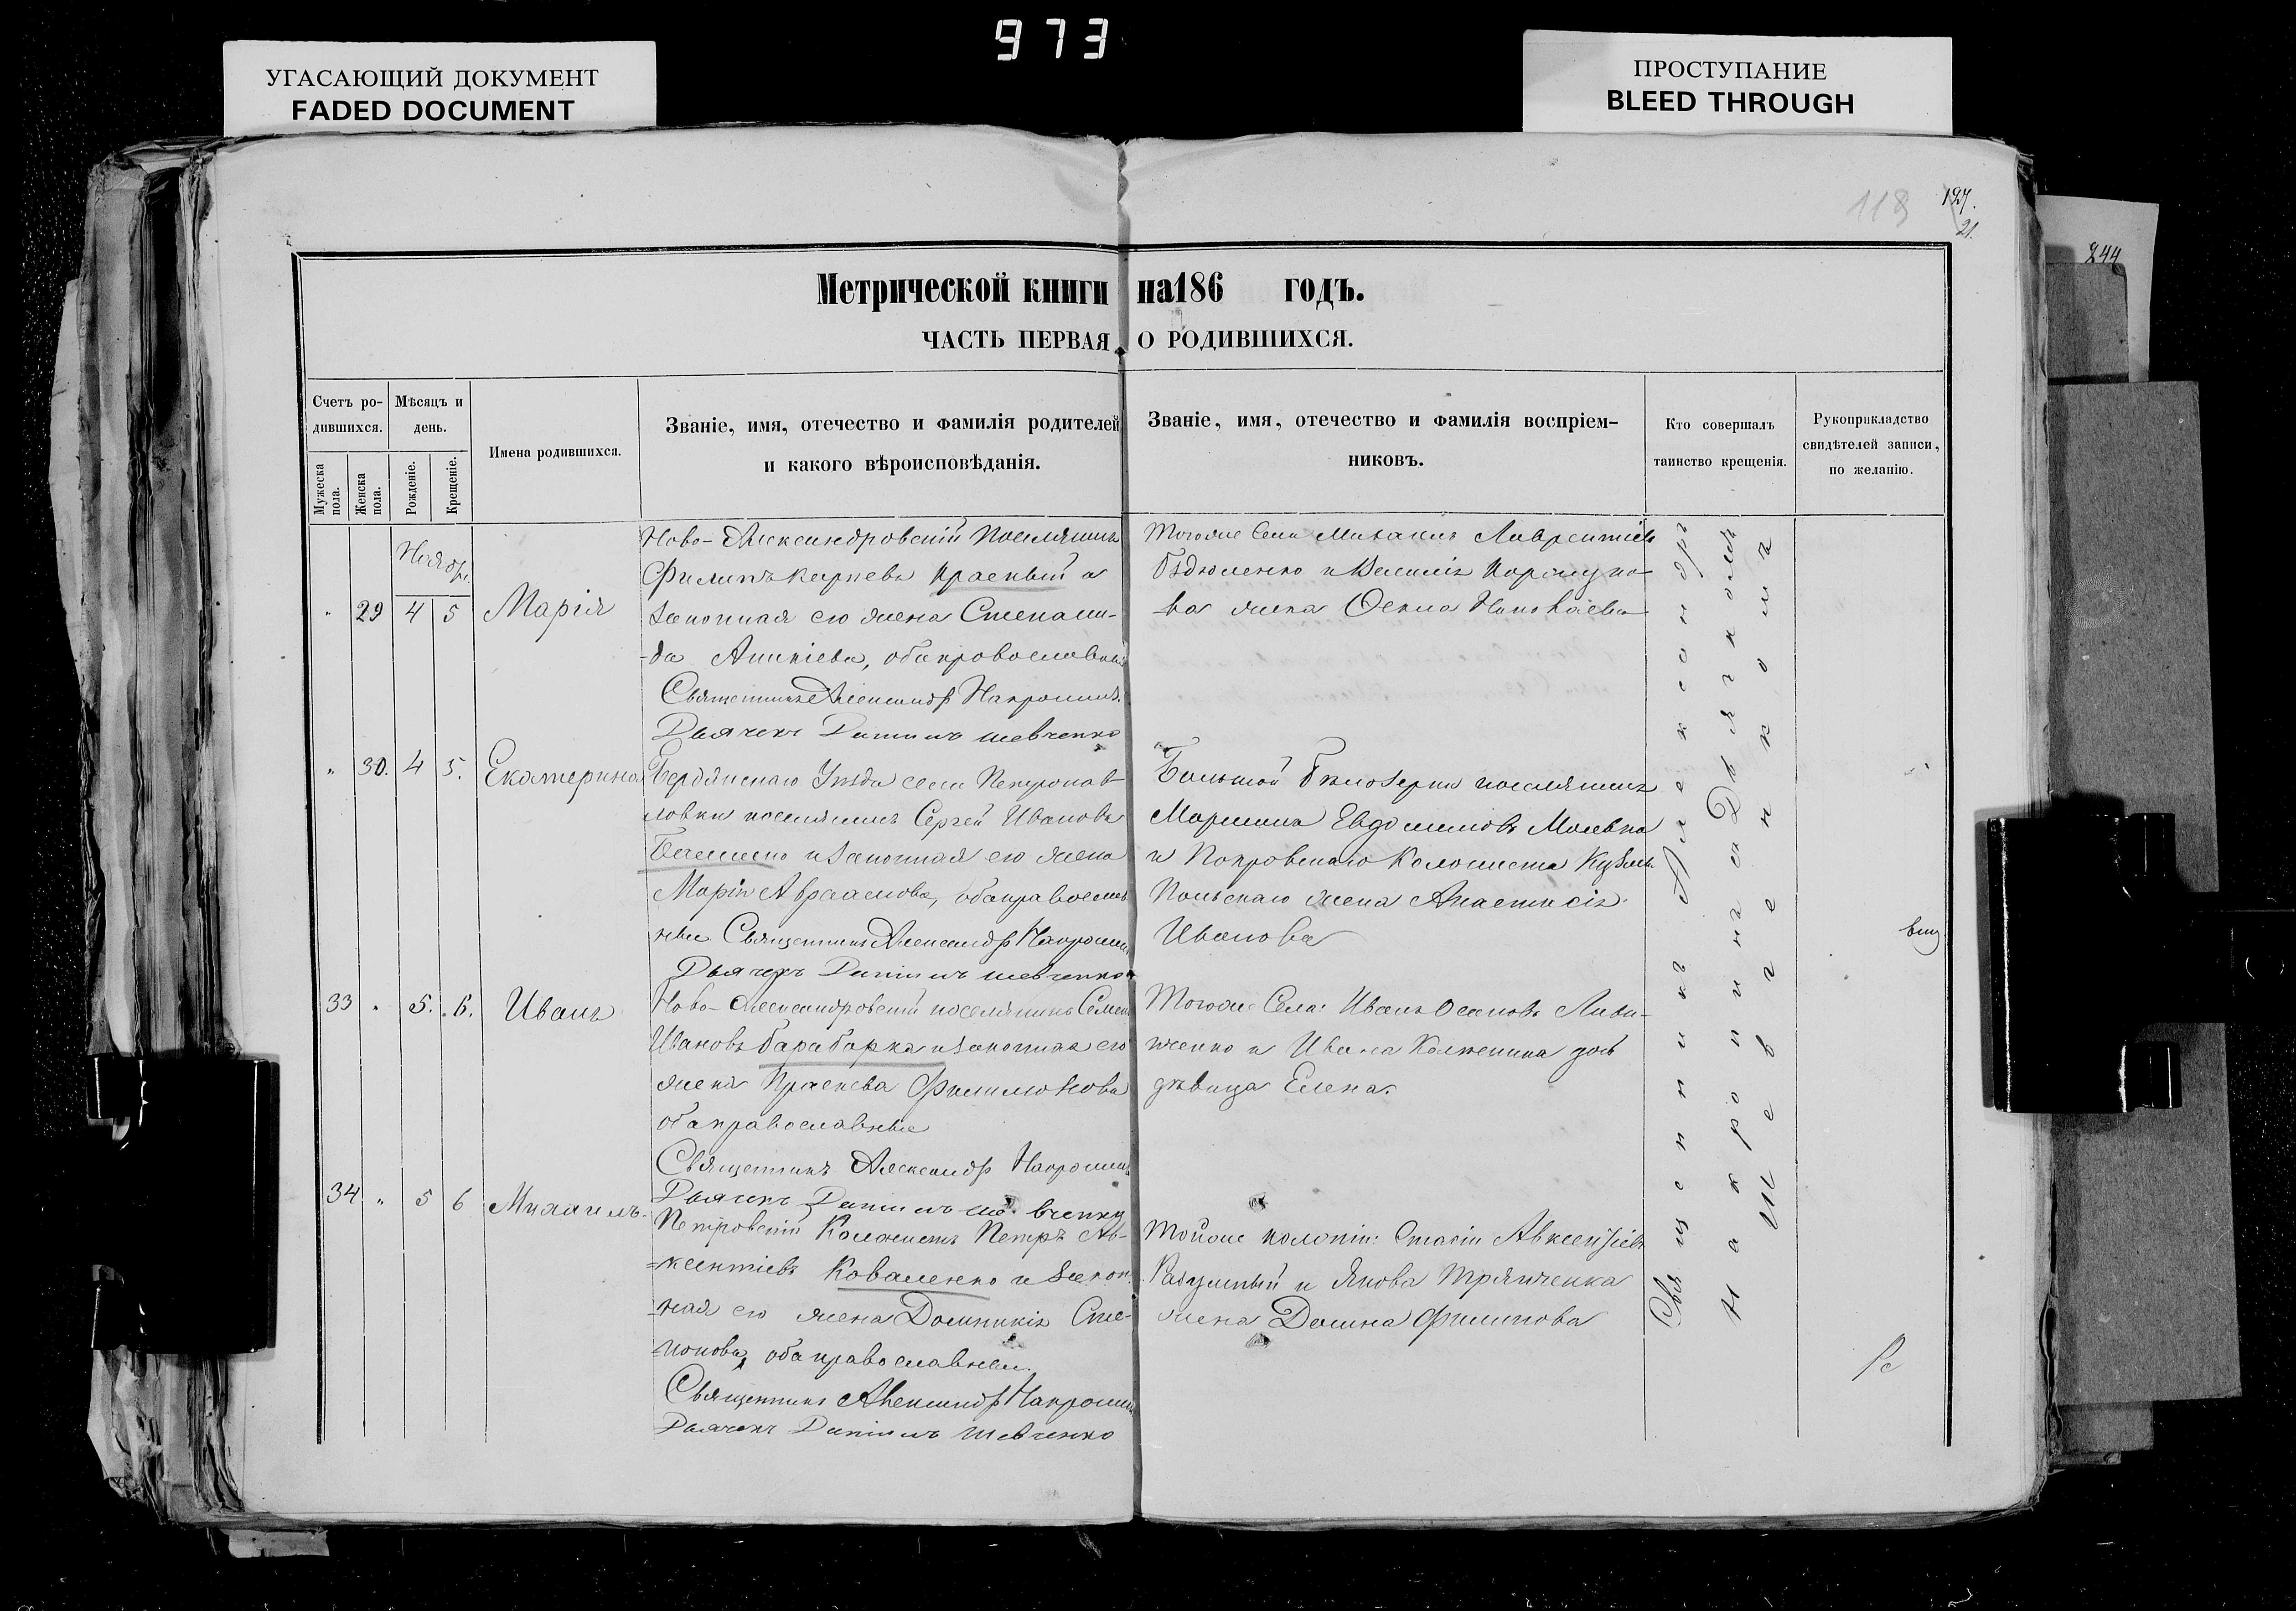 973
УГАСАЮЩИЙ ДОКУМЕНТ
FADED DOCUMENT
ПРОСТУПАНИЕ
BLEED THROUGH
118
21.
244
Метрической книги на 186 годъ.
ЧАСТЬ ПЕРВАЯ О РОДИВШИХСЯ.
Счетъ ро-
дившихся.
Мужеска пола.
Женска пола.
Мѣсяцъ и
день.
Рожденіе.
Крещеніе.
Имена родившихся.
Званіе, имя, отечество и фамилія родителей
и какого вѣроисповѣданія.
Званіе, имя, отечество и фамилія воспріем-
никовъ.
Кто совершалъ
таинство крещенія.
Рукоприкладство
свидѣтелей записи,
по желанію.
Ноябр.
" 29 4 5 Марія
Ново-Александровскій поселянинъ
Филипъ Карпевъ Красный и
законная его жена Степани-
да Аникіева, оба православные
Священникъ Александръ Накрошинъ
Дьячекъ Даніилъ Шевченко
Тогоже Села Михаилъ Лаврентіевъ
и Василія
ва жена Николаева
" 30. 4 5. Екатерина
Бердянскаго Уѣзда села Петропав-
ловки поселянинъ Сергѣй Ивановъ
и законная его жена
Марія Авраамова, оба православ-
ные Священникъ Александръ Накрошинъ
Дьячекъ Даніилъ Шевченко
Большой Бѣлозерки поселянинъ
Евдокимовъ
и Покровскаго Колониста
Польскаго жена Анастасія
Иванова
33 " 5. 6. Иванъ
Ново-Александровскій поселянинъ Семенъ
Ивановъ Барабарка и законная его
жена Праскева Филимонова
оба православные
Священникъ Александръ Накрошинъ
Дьячекъ Даніилъ Шевченко
Тогоже Села: Иванъ Осиповъ Литви-
ненко и Ивана дочь
дѣвица Елена.
34 " 5 6 Михаилъ
Петровскій Колонистъ Петръ Ав-
ксентіевъ Коваленко и закон-
ная его жена Домникія Сте-
панова, оба православные.
Священникъ Александръ Накрошинъ
Дьячекъ Даніилъ Шевченко
Тойже колоніи: Авксентіевъ
и Якова
жена Домна Филипова
Священникъ Александръ
Накрошинъ съ Дьячкомъ
Шевченкомъ